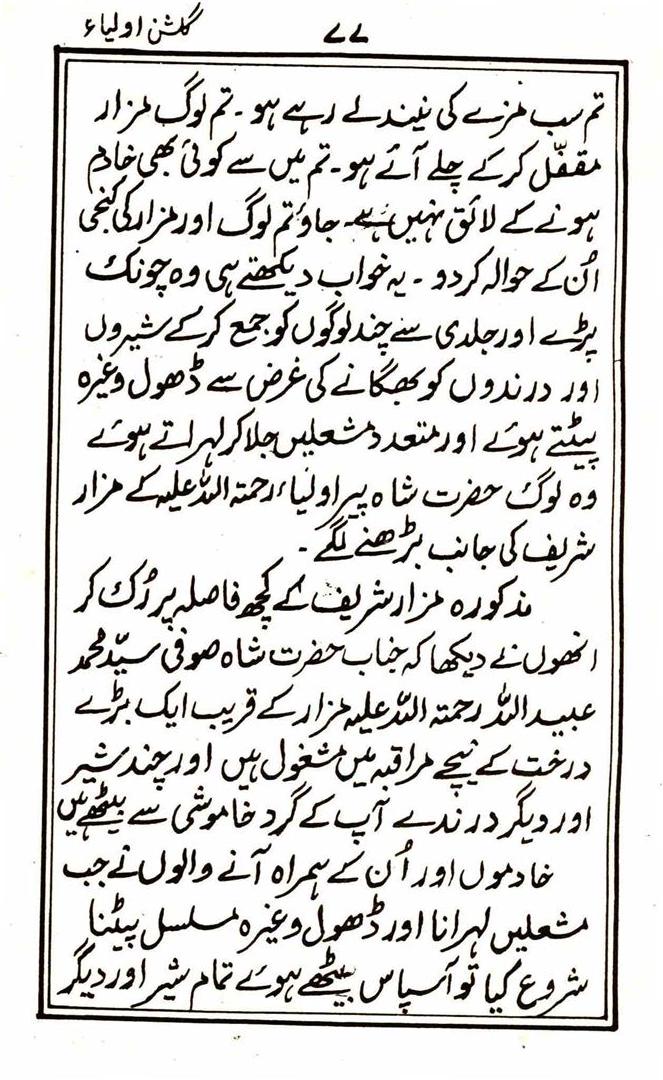 ۷۷ گلشن اولیاء
تم سب مزے کی نیند لے رہے ہو۔ تم لوگ مزار
مقفّل کر کے چلے آئے ہو۔ تم میں سے کوئی بھی خادم
ہونے کے لائق نہیں ہے۔ جاؤ تم لوگ اور مزار کی کنجی
اُن کے حوالہ کر دو ۔ یہ خواب دیکھتے ہی وہ چونک
پڑے اور جلدی سے چند لوگوں کو جمع کر کے شیروں
اور درندوں کو بھگانے کی غرض سے ڈھول وغیرہ
پیٹتے ہوئے اور متعدد مشعلیں جلا کر لہراتے ہوئے
وہ لوگ حضرت شاہ پیر اولیاء رحمتہ اللہ علیہ کے مزار
شریف کی جانب بڑھنے لگے ۔
مذکورہ مزار شریف کے کچھ فاصلہ پر رُک کر
انھوں نے دیکھا کہ جناب حضرت شاہ صوفی سیّد محمد
عبید اللہ رحمتہ اللہ علیہ مزار کے قریب ایک بڑے
درخت کے نیچے مراقبہ میں مشغول ہیں اور چند شیر
اور دیگر درندے آپ کے گرد خاموشی سے بیٹھے ہیں
خادموں اور اُن کے ہمراہ آنے والوں نے جب
مشعلیں لہرانا اور ڈھول وغیرہ مسلسل پیٹنا
شروع کیا تو آس پاس بیٹھے ہوئے تمام شیر اور دیگر